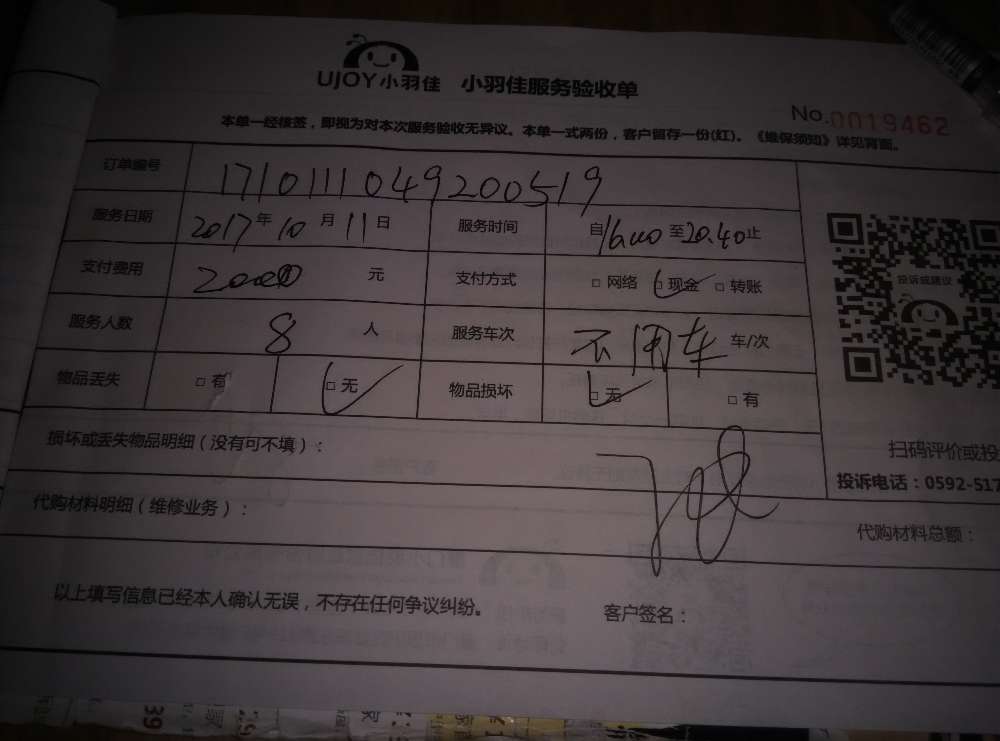 UJOY小羽佳 小羽佳服务验收单
No.0019462
本单一经核签，即视为对本次服务验收无异议。本单一式两份，客户留存一份(红)。《维保须知》详见背面。
订单编号 1710111049200519
服务日期 2017年10月11日 服务时间 自16:00至20.40止
支付费用 元 支付方式 □网络 □现金 □转账
服务人数 8人 服务车次 不用车 车/次
物品丢失 □有 □无 物品损坏 □无 □有
投诉或建议
扫码评价或投
投诉电话：0592-517
损坏或丢失物品明细（没有可不填）：
代购材料明细（维修业务）： 代购材料总额：
以上填写信息已经本人确认无误，不存在任何争议纠纷。 客户签名：
39